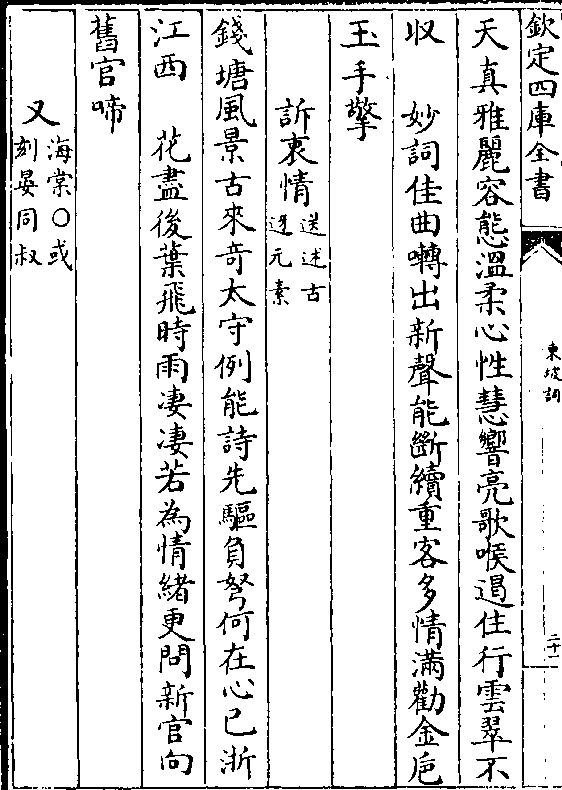 欽定四庫全書
東坡詞
二十一
天真雅麗容態溫柔心性慧響亮歌喉遏住行雲翠不
収　妙詞佳曲囀出新聲能斷續重客多情滿勸金巵
玉手擎
訴衷情送述古迓元素
錢塘風景古來竒太守例能詩先驅負弩何在心已浙
江西　花盡後葉飛時雨凄凄若為情緒更問新官向
舊官啼
又海棠○或刻晏同叔